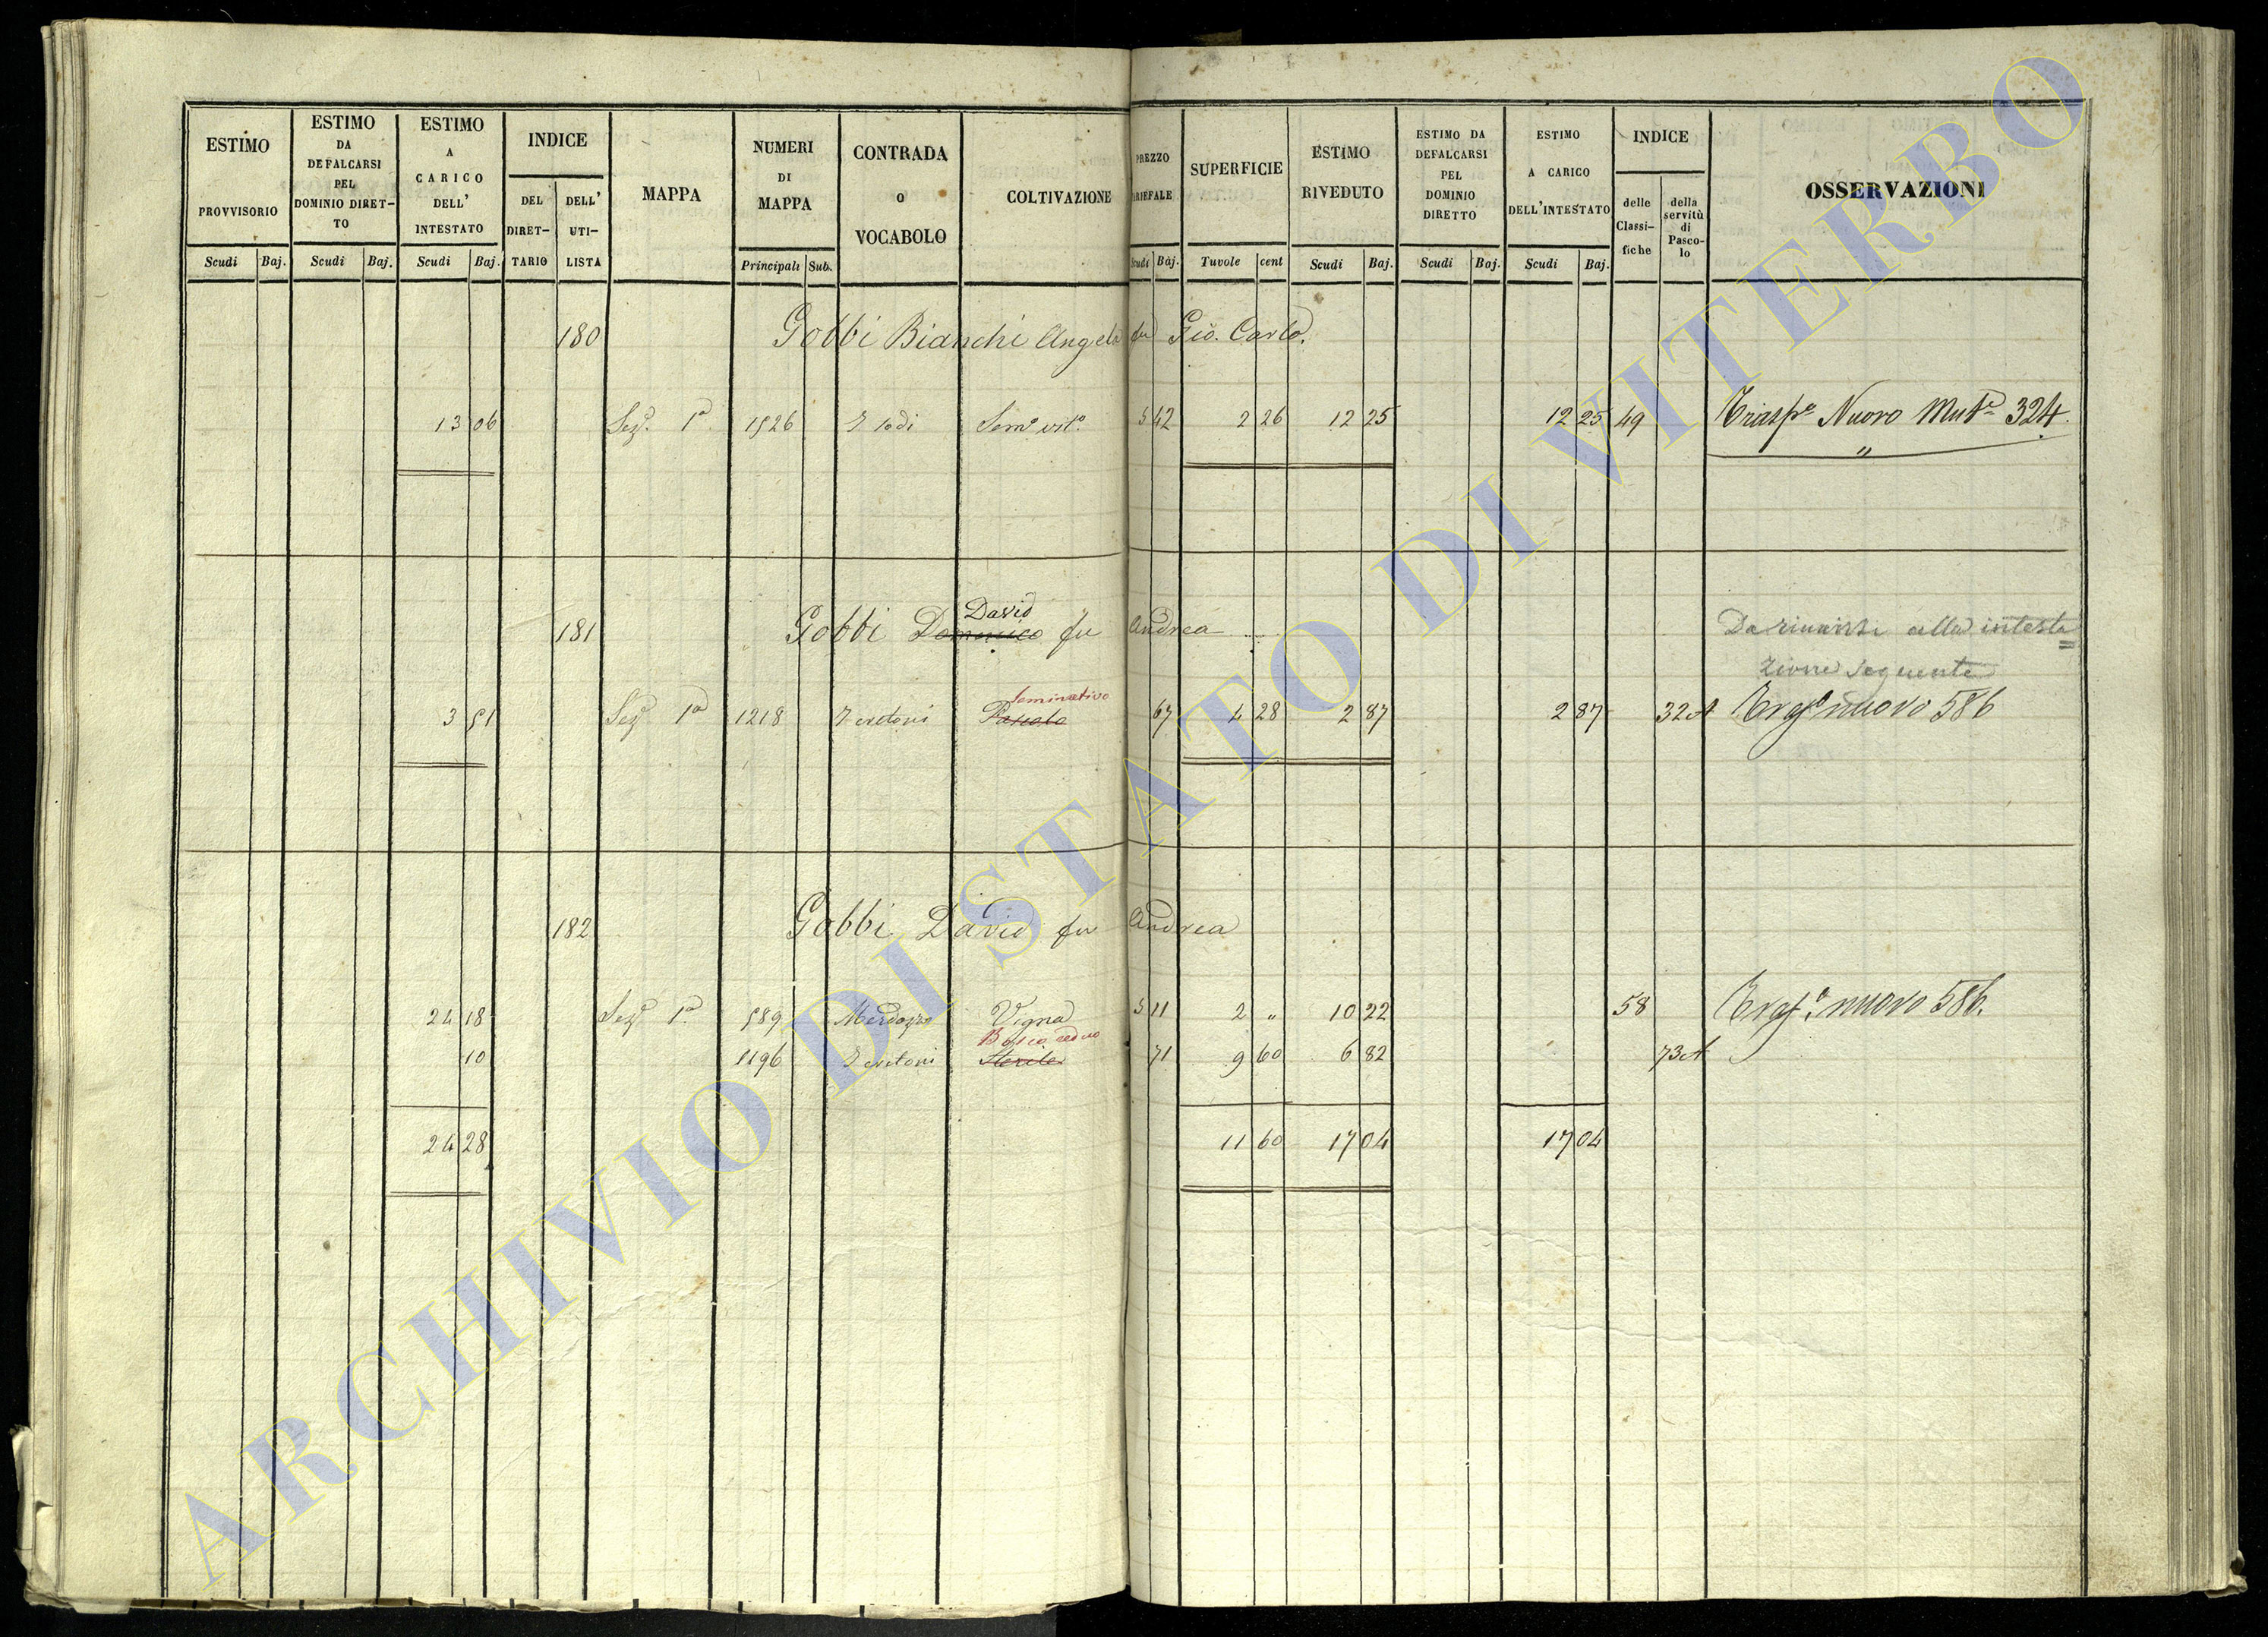 ESTIMO PROVVISORIO
ESTIMO DA DEFALCARSI PEL DOMINIO DIRET-TO
ESTIMO A CARICO DELL' INTESTATO
INDICE
DEL DIRET-TARIO
DELL' UTI-LISTA
MAPPA
NUMERI DI MAPPA
CONTRADA O VOCABOLO
COLTIVAZIONE
PREZZO
SUPERFICIE
ESTIMO RIVEDUTO
ESTIMO DA DEFALCARSI PEL DOMINIO DIRETTO
ESTIMO A CARICO DELL'INTESTATO
INDICE
delle Classi-fiche
della servitù di Pasco-lo
OSSERVAZIONI
Scudi Baj. Scudi Baj. Scudi Baj. Principali Sub. Scudi Baj. Tavole cent Scudi Baj. Scudi Baj. Scudi Baj.
180 Gobbi Bianchi Angelo fu Gio. Carlo.
13 06 Sezᵉ 1ª 1526 Sem° vit° 5 42 2 26 12 25 12 25 49 Nuovo 324.
"
David
181 Gobbi Domenico fu Andrea
Da riunirsi alla intesta
=
zione seguente
seminativo
3 51 Sezᵉ 1ª 1218 Pascolo 67 4 28 2 87 2 87 32 A nuovo 586
182 Gobbi David fu Andrea
24 18 Sezᵉ 1ª 589 Vigna 5 11 2 " 10 22 58 nuovo 586.
Bosco ceduo
10 1196 Sterile 71 9 60 6 82 73 A
24 28 11 60 17 04 17 04
ARCHIVIO DI STATO DI VITERBO